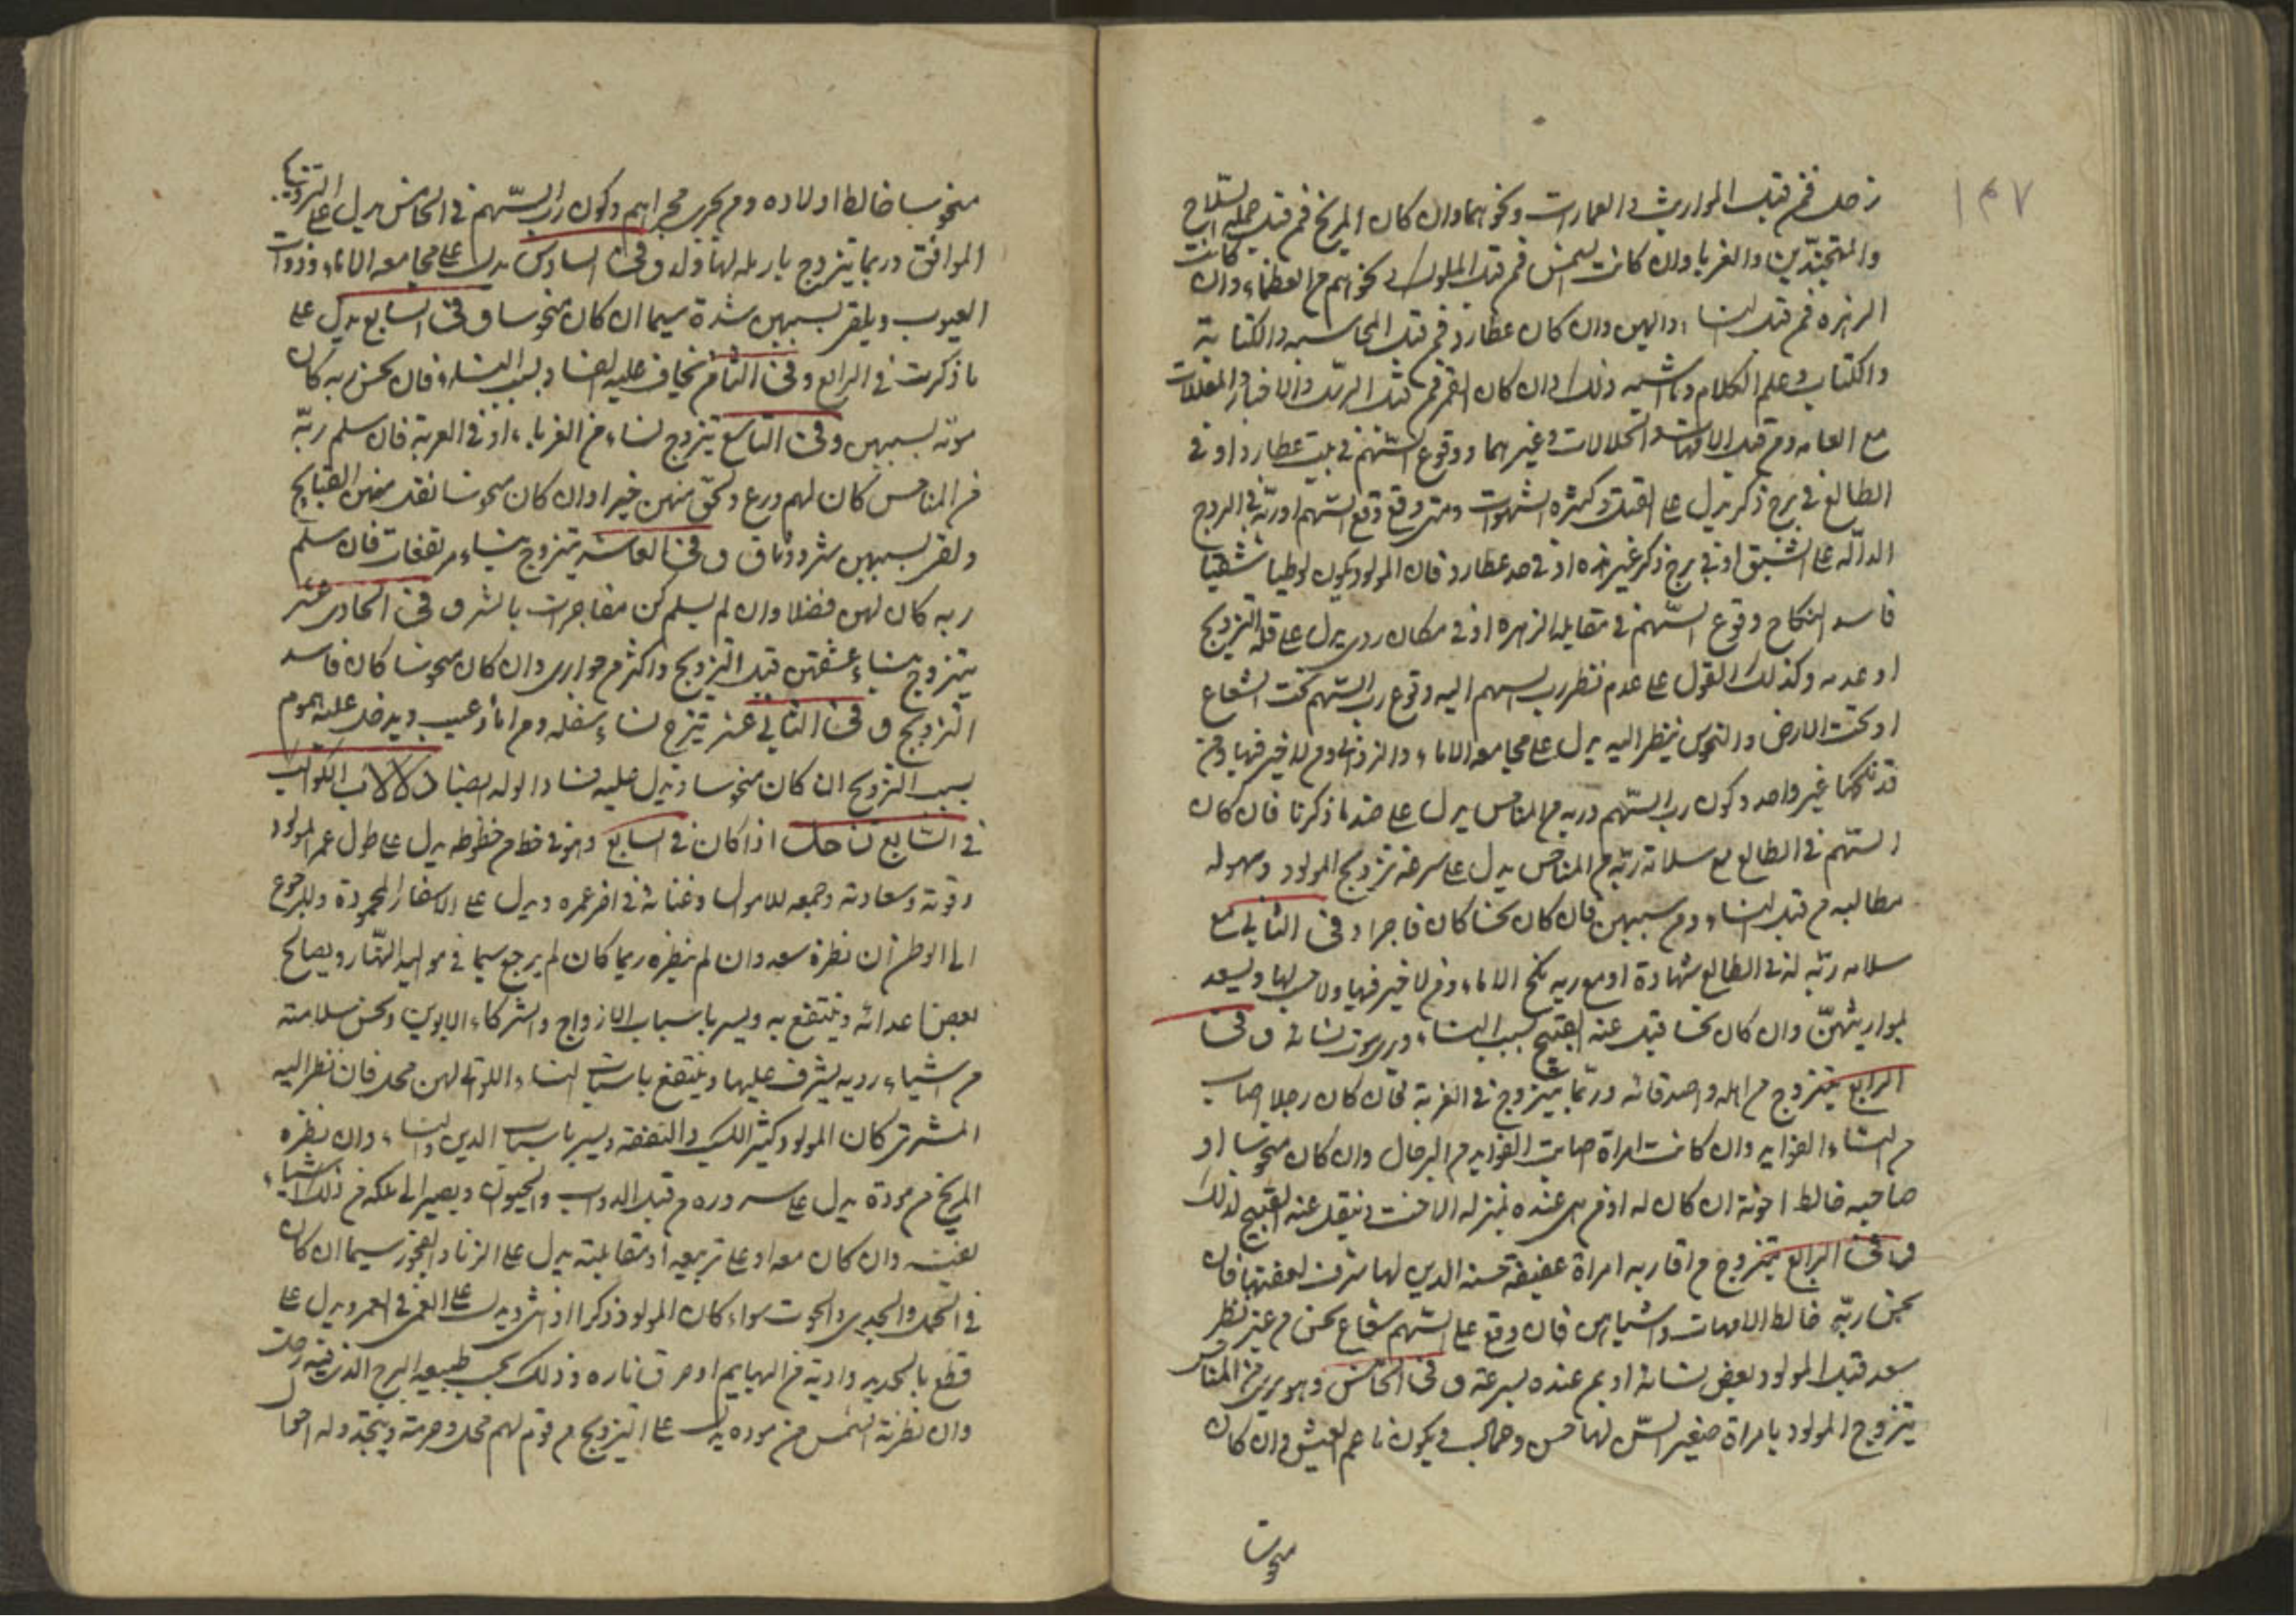 ١٤٧
زحل فمن قبل المواريث والعمارات ونحوهما وان كان المريخ فمن قبل حملة السلاح
والمتجندين والغربا وان كانت الشمس فمن قبل الملوك ونحوهم من العظماء وان كانت
الزهرة فمن قبل النساء والهين وان كان عطارد فمن قبل المحاسبه والكتابة
والكتاب وعلم الكلام وما اشبه ذلك وان كان القمر فمن قبل البريد والاخبار والمعاملات
مع العامه ومن قبل الامهات والخالات وغيرهما ووقوع السهم في بيت عطارد او في
الطالع في برج ذكر يدل على القبل وكثرة الشهوات ومتى وقع السهم او ربه في البروج
الدالة على الشبق او في برج ذكر غير هذه او في حد عطارد فان المولود يكون لوطيا شقيا
فاسد النكاح وقوع السهم في مقابلة الزهره او في مكان ردى يدل على قلة التزويج
او عدمه وكذلك القول على عدم نظر رب السهم اليه وقوع رب السهم تحت الشعاع
او تحت الارض والنحوس ينظر اليه يدل على مجامعه الاماء والزواني ومن لا خير فيها ومن
قد نكحها غير واحد وكون رب السهم وربه من المناحس يدل على ضد ما ذكرنا فان كان
السهم في الطالع مع سلامة ربه من المناحس يدل على سرعة تزويج المولود وسهوله
مطالبه من قبل النساء ومن سببهن فان كان نحسا كان فاجرا وفى الثاني مع
سلامه ربه له في الطالع شهادة او مع ربه ينكح الاماء ومن لا خير فيها ولا حسب لها ويسعد
بمواريثهن وان كان نحسا قيل عنه القبيح بسبب النساء ويرى موت نسائه و فى
الرابع يتزوج من اهله واصدقائه وربما يتزوج في الغربة فان كان رجلا اصاب
من النساء الفوايد وان كانت امراة اصابت الفوايد من الرجال وان كان منحوسا او
صاحبه خالط اخوته ان كان له او من هى عنده بمنزله الاخت وينقل عنه القبيح لذلك
و فى الرابع يتزوج من اقاربه امراة عفيفة حسنه الدين لها شرف لعفتها فان
نحس ربه خالط الامهات واشباههن فان وقع على السهم شعاع نحس من غير نظر
سعد قتل المولود بعض نسائه او يمتن عنده بسرعة و فى الخامس وهو برى من المناحس
يتزوج المولود بامراة صغير السن لها حسن وجمال ويكون ناعم العيش وان كان
منحوسا
منحوسا خالط اولاده ومن يجرى مجراهم وكون رب السهم في الخامس يدل على التزويج
الموافق وربما يتزوج بارمله لها ولد و فى السادس يدل على مجامعه الاماء وذوات
العيوب ويلقى بسببهن شدة سيما ان كان منحوسا و فى السابع يدل على
ما ذكرت في الرابع وفى الثامن يخاف عليه الفساد بسبب النساء فان نحس ربه كان
موته بسببهن وفى التاسع يتزوج نساء من الغرباء او في الغربة فان سلم ربه
من المناحس كان لهم ورع ولحق منهن خيرا وان كان منحوسا نقل منهن القبايح
ولقى بسببهن شرورا و فى العاشر يتزوج بنساء مرتفعات فان سلم
ربه كان لهن فضلا وان لم يسلم كن مفاجرات بالشر و فى الحادى عشر
يتزوج بنساء عشقهن قبل التزويج واكثرهم جوارى وان كان منحوسا كان فاسد
التزويج و فى الثاني عشر يتزوج نساء سفله ومن اماء وعبيد ويدخل عليه هموم
بسبب التزويج ان كان منحوسا ويدل عليه فساد الولد ايضا دلالات الكواكب
في السابع زحل اذا كان في السابع وهو في حظ من حظوظه يدل على طول عمر المولود
وقوته وسعادته وجمعه للاموال وغنائه في اخر عمره ويدل على الاسفار المحمودة والرجوع
الى الوطن ان نظره سعد وان لم ينظره ربما كان لم يرجع سيما في مواليد النهار ويصالح
بعض اعدائه وينتفع به ويسر باسباب الازواج والشركاء والابوين وبحسن سلامته
من اشياء رديه يشرف عليها وينتفع باسباب النساء اللوتى لهن محل فان نظر اليه
المشترى كان المولود كثير الكسب والنفقة ويسر باسباب الدين والنساء وان نظره
المريخ من مودة يدل على سروره من قبل الدواب والحيوان ويصير الى ملكه من ذلك اشياء
لغيره وان كان معه او على تربيعه او مقابلته يدل على الزنا والفجور سيما ان كان
في الحمل والجدى والحوت سواء كان المولود ذكرا او انثى ويدل على الغم في العمر ويدل على
قطع بالحديد واذية من البهايم او حرق ناره وذلك بحسب طبيعه البرج الذى فيه زحل
وان نظرته الشمس من موده يدل على التزويج من قوم لهم محل وحرمة ويتجدد له احوال